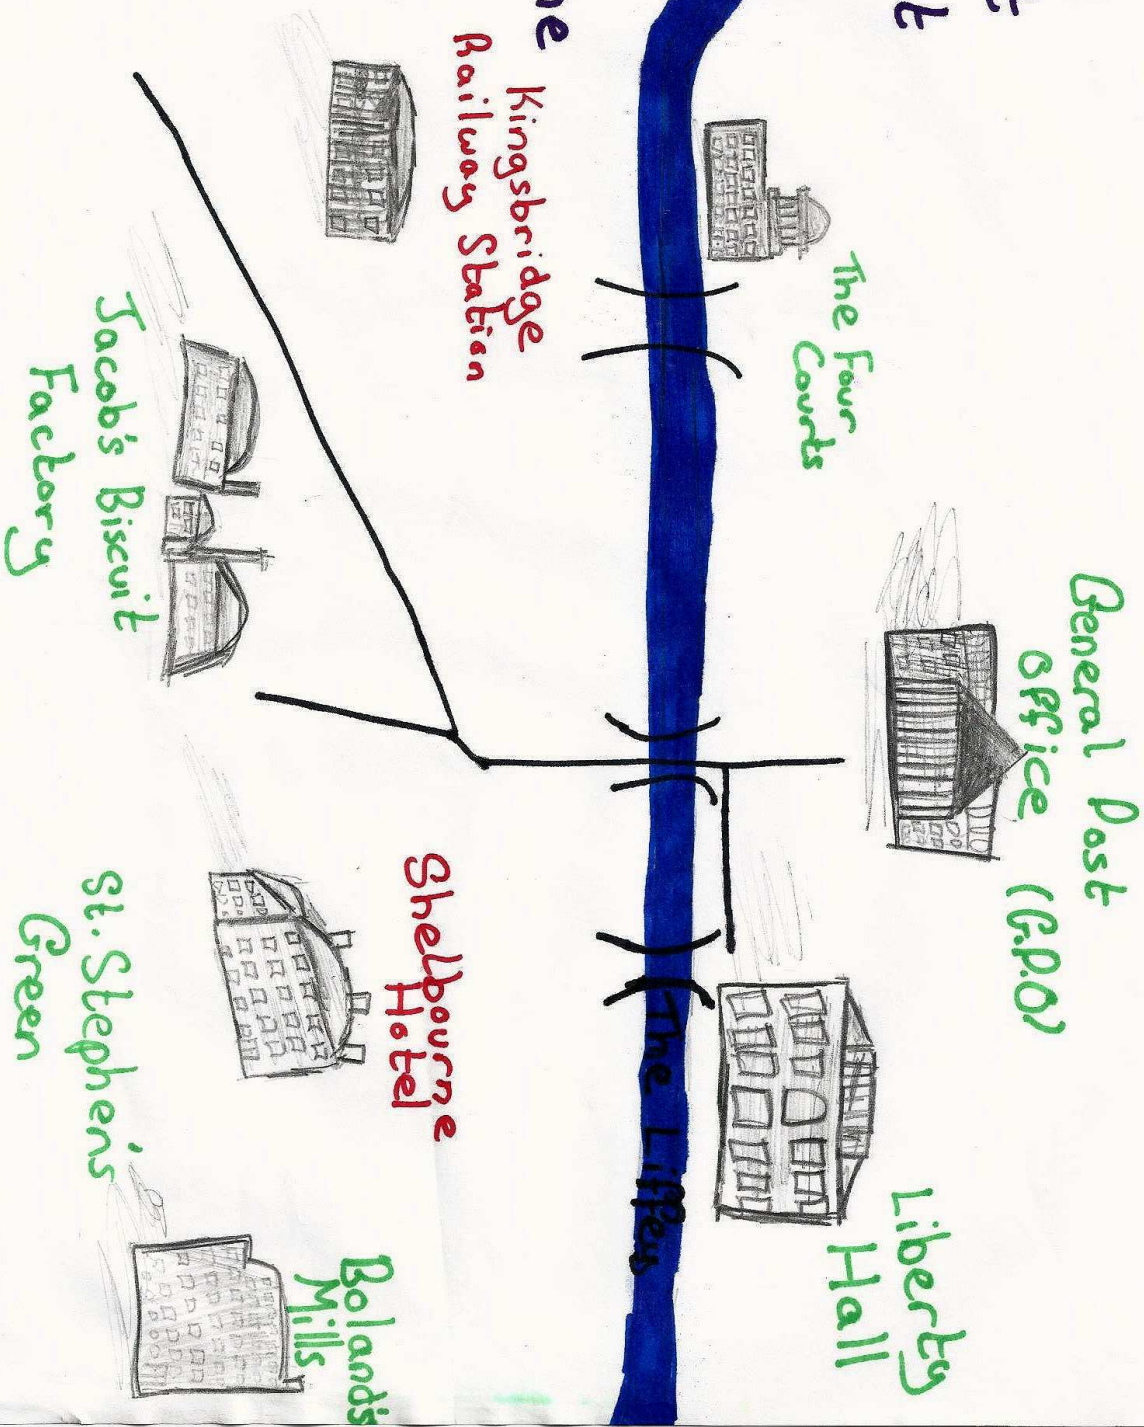 The Four
Courts
General Post
Office (G.P.O)
Liberty
Hall
The Liffey
Kingsbridge
Railway Station
Shelbourne
Hotel
Boland's
Mills
Jacob's Biscuit
Factory
St. Stephen's
Green